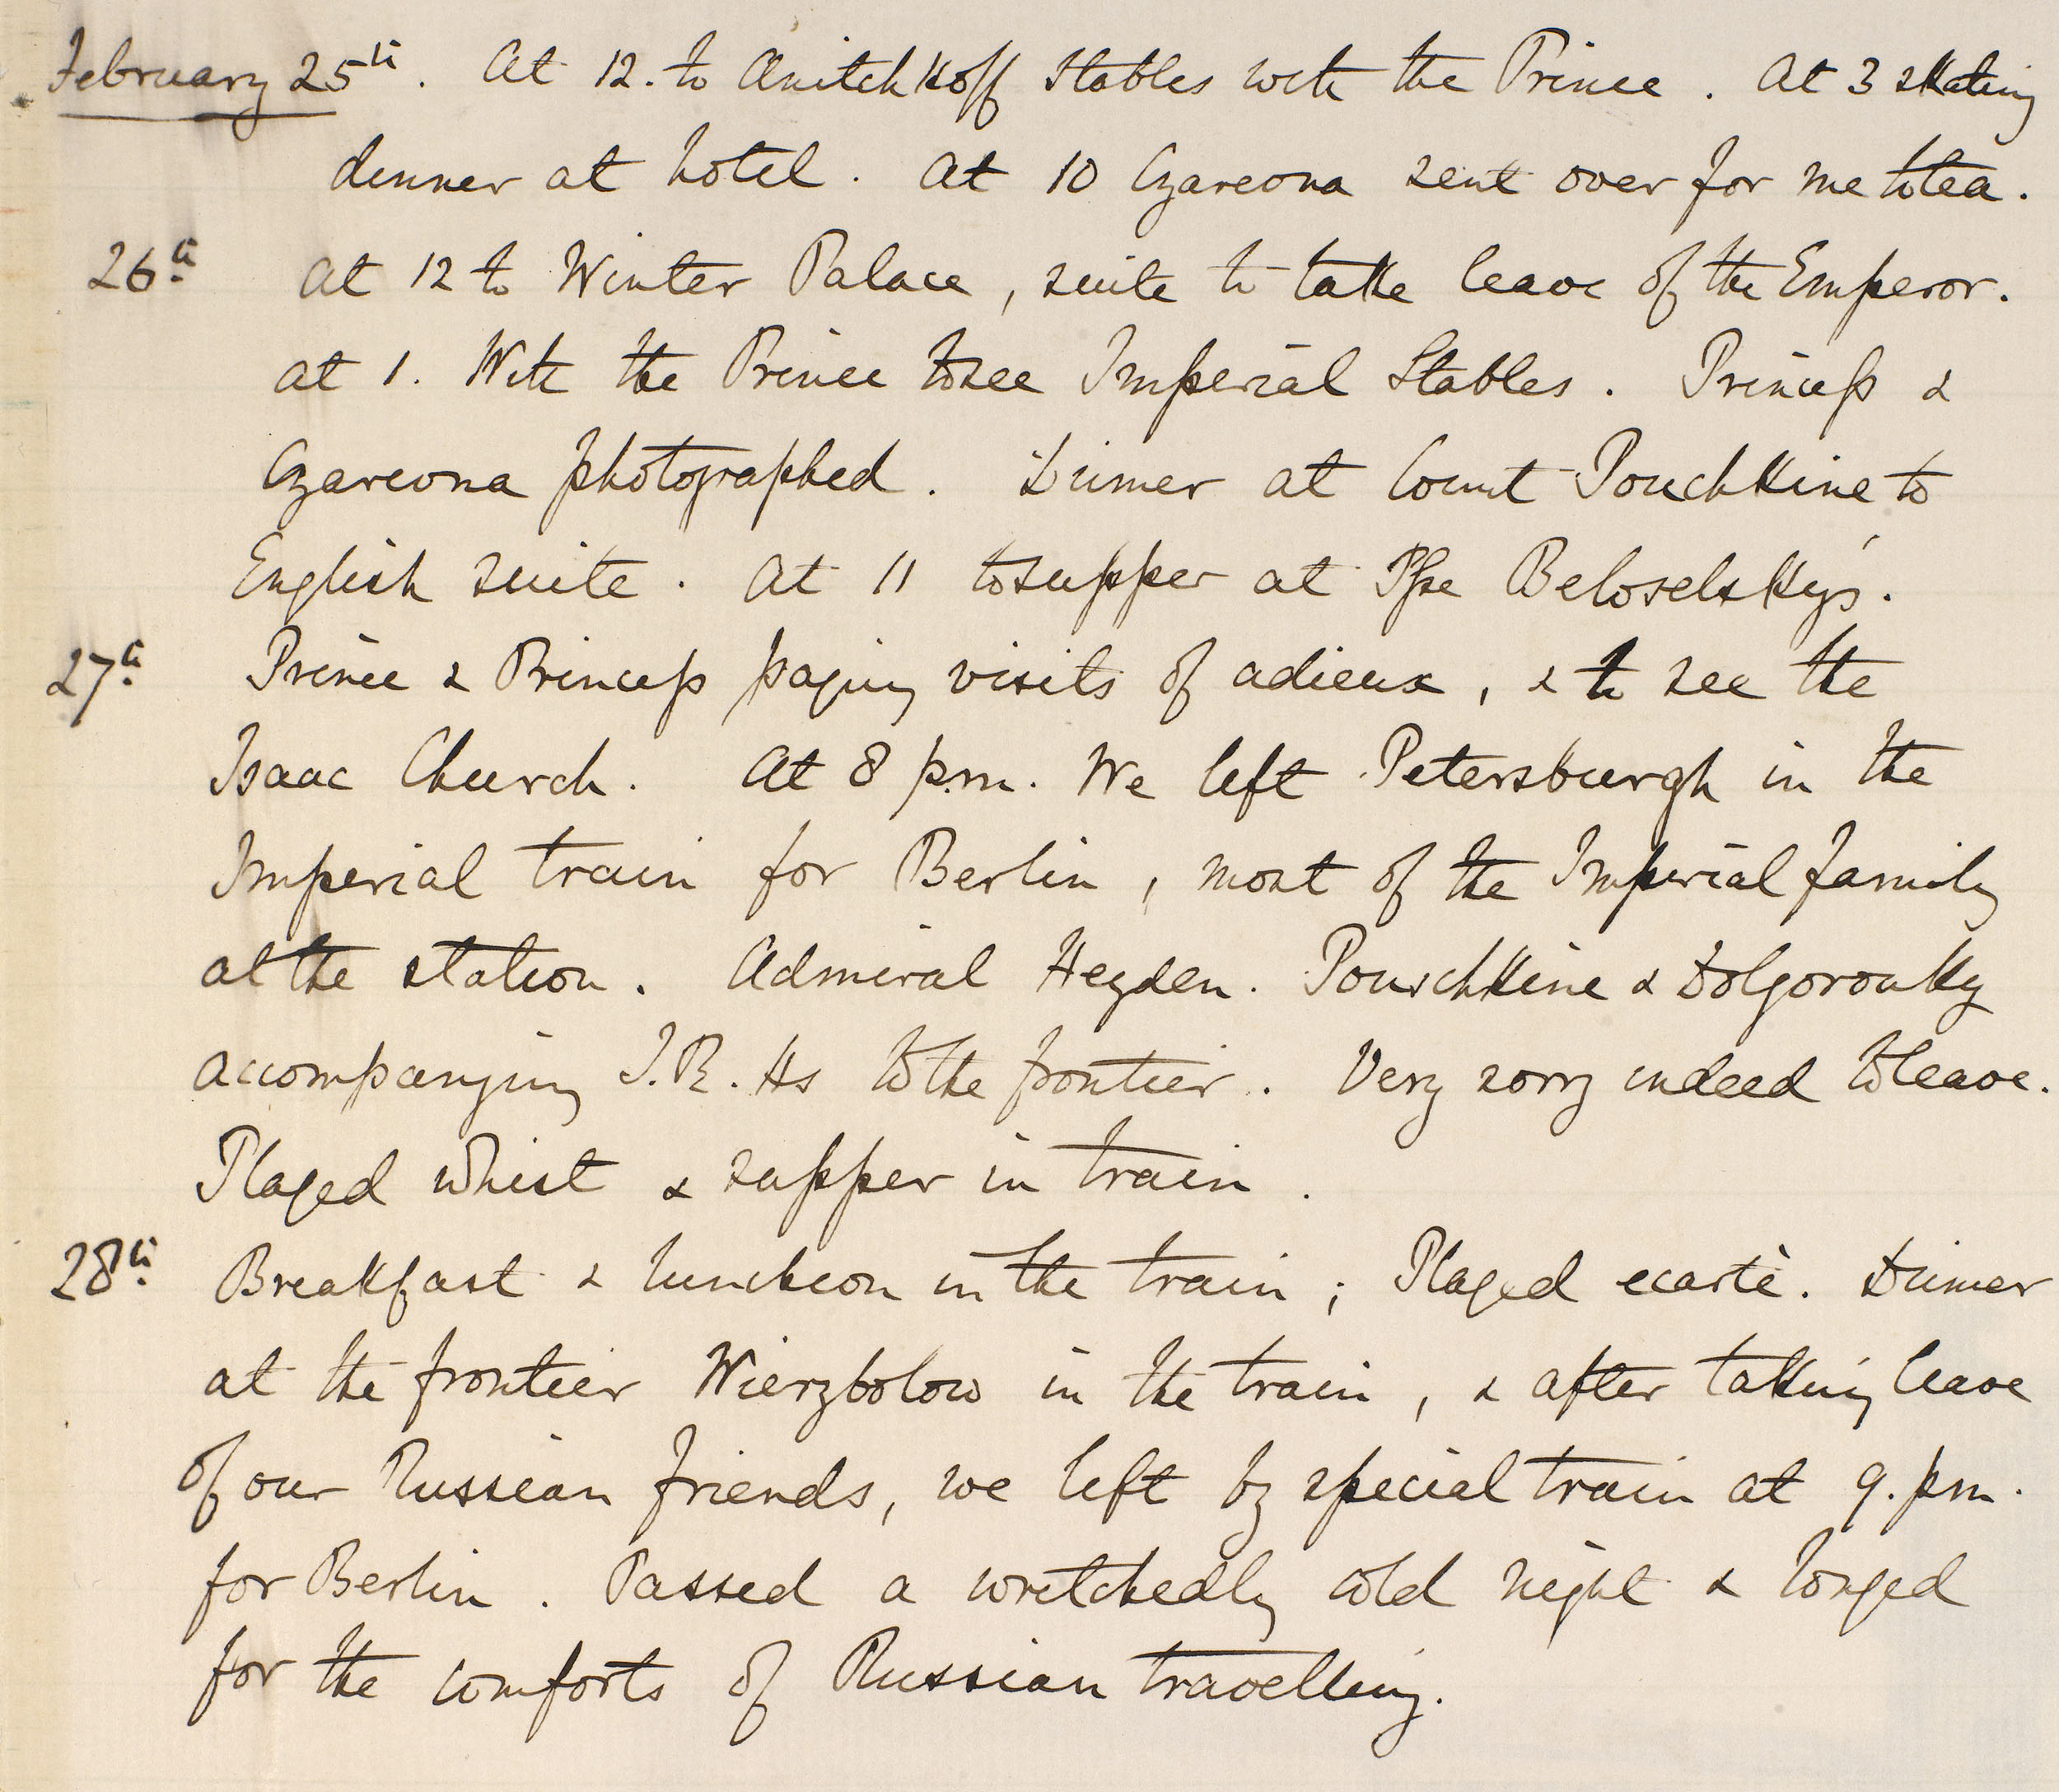 February 25th. At 12. to Anitchkoff Stables with the Prince. At 3 skating
dinner at hotel. At 10 Czarevna sent over for me to tea.
26th At 12 to Winter Palace, suite to take leave of the Emperor.
at 1. With the Prince to see Imperial Stables. Princess &
Czarevna photographed. Dinner at Count Pouchkine to
English suite. At 11 to supper at Psse Beloselsky's.
27th Prince & Princess paying visits of adieux, & to see the
Isaac Church. At 8 p.m. We left Petersburgh in the
Imperial train for Berlin, most of the Imperial family
at the station. Admiral Heyden. Pouschkine & Dolgorouky
accompanying T.R.Hs to the frontier. Very sorry indeed to leave.
Played whist & supper in train.
28th Breakfast & luncheon in the train; Played ecarté. Dinner
at the frontier Wierzbolow in the train, & after taking leave
of our Russian friends, we left by special train at 9. pm.
for Berlin. Passed a wretchedly cold night & longed
for the comforts of Russian travelling.